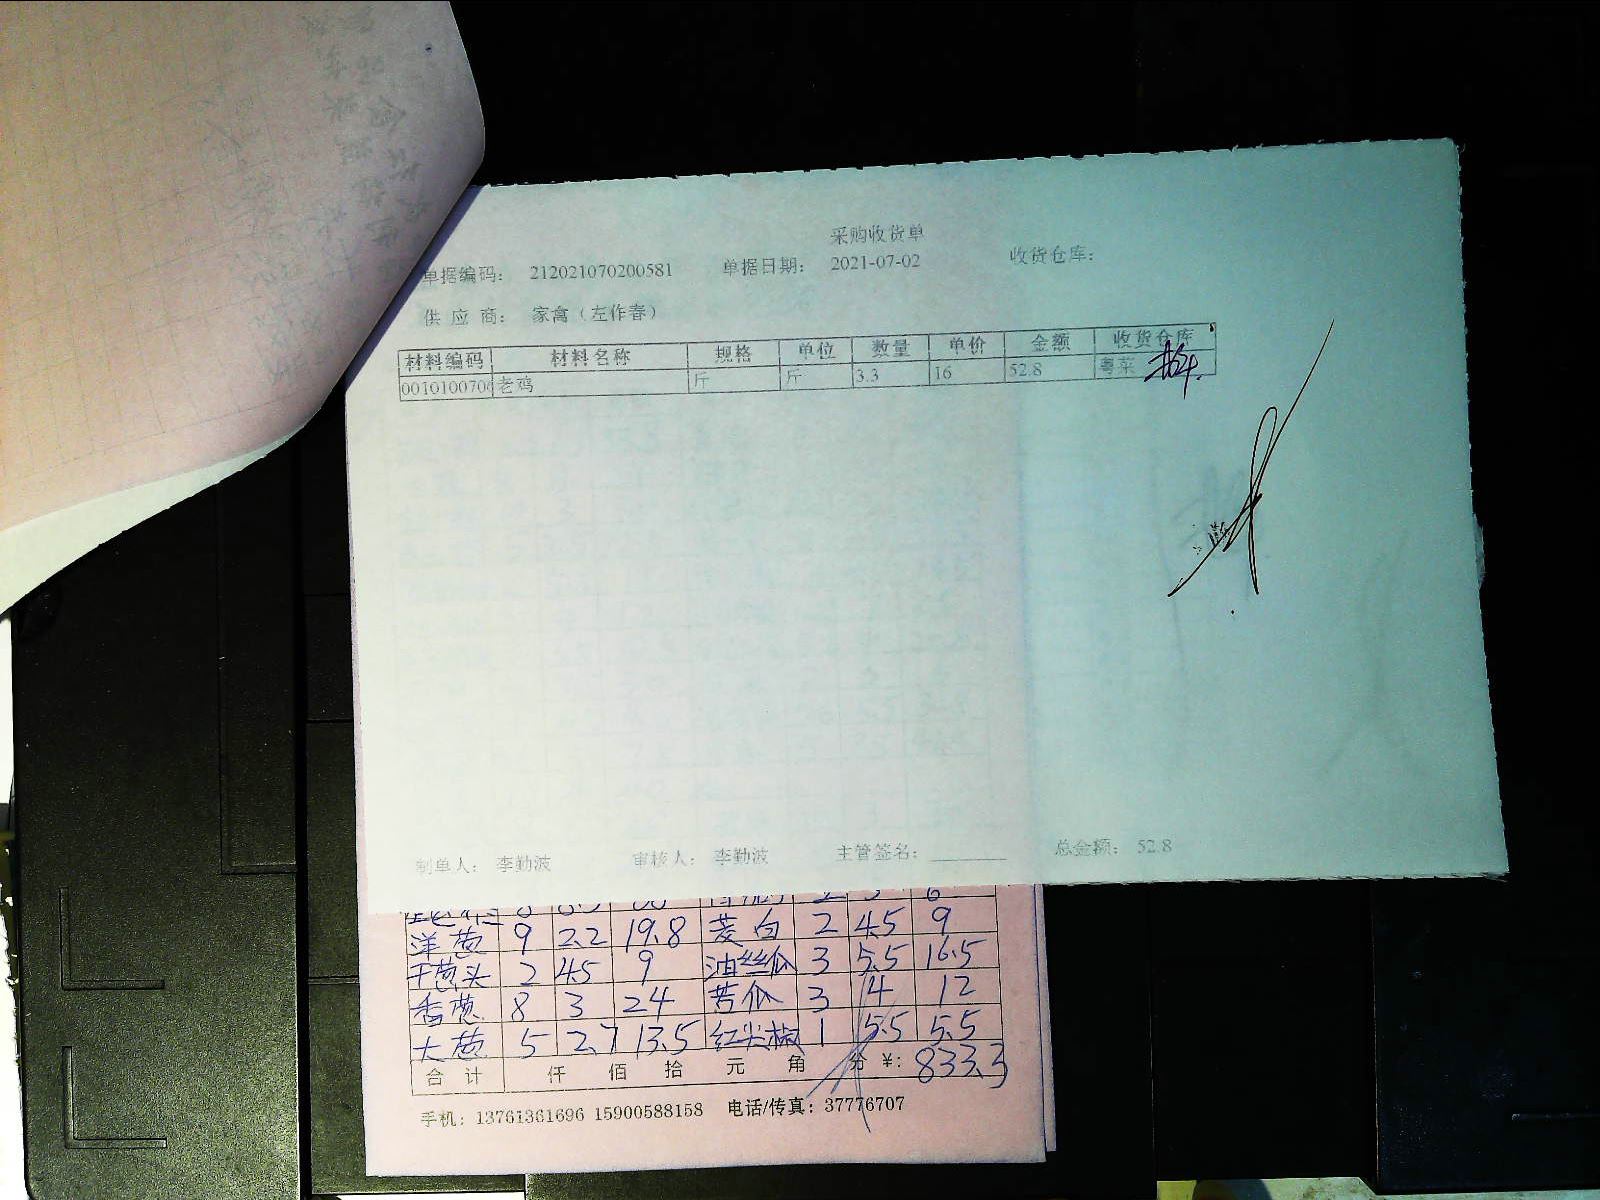 采购收货单
单据编码： 212021070200581 单据日期： 2021-07-02 收货仓库：
供 应 商： 家禽（左作春）
材料编码 材料名称 规格 单位 数量 单价 金额 收货仓库
0010100706 老鸡 斤 斤 3.3 16 52.8 粤菜
制单人： 李勤波 审核人： 李勤波 主管签名： 总金额： 52.8
洋葱 9 2.2 19.8 茭白 2 4.5 9
干葱头 2 4.5 9 油丝瓜 3 5.5 16.5
香葱 8 3 24 苦瓜 3 4 12
大葱 5 2.7 13.5 红尖椒 1 5.5 5.5
合 计 仟 佰 拾 元 角 分 ¥: 833.3
手机：13761361696 15900588158 电话/传真：37776707